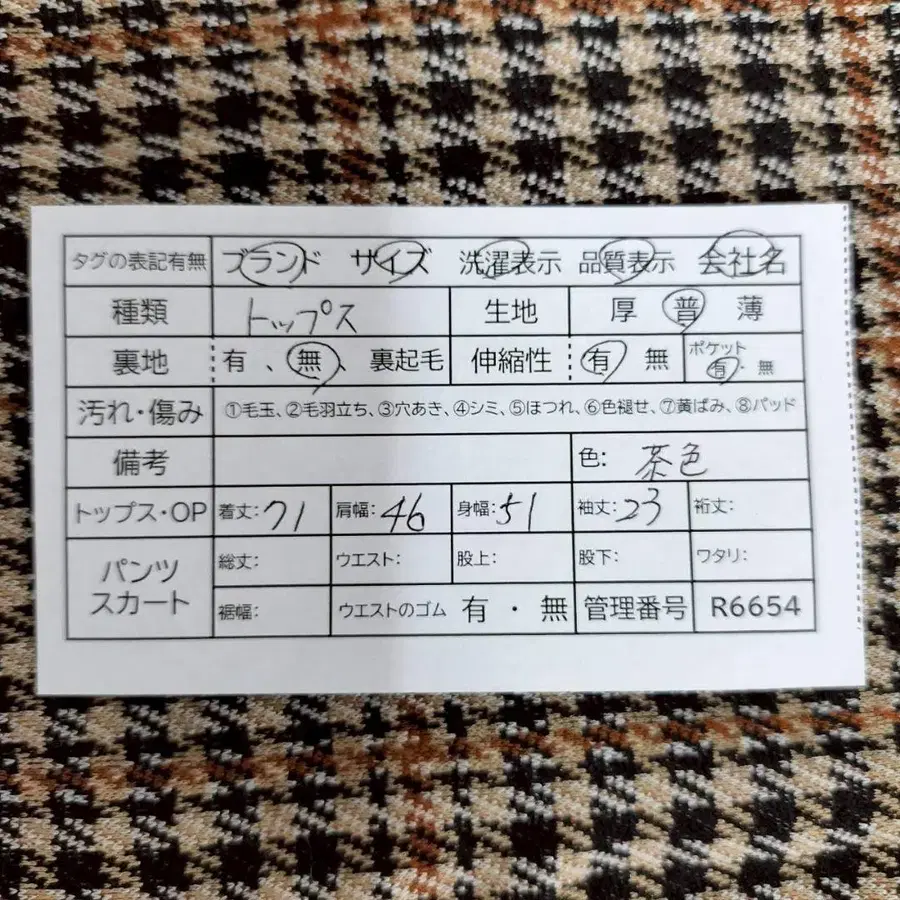 タグの表記有無 ブランド サイズ 洗濯表示 品質表示 会社名
種類 トップス 生地 厚 普 薄
裏地 有 、 無 、 裏起毛 伸縮性 有 無 ポケット 有 ・ 無
汚れ・傷み ①毛玉、②毛羽立ち、③穴あき、④シミ、⑤ほつれ、⑥色褪せ、⑦黄ばみ、⑧パッド
備考 色: 茶色
トップス・OP 着丈: 71 肩幅: 46 身幅: 51 袖丈: 23 裄丈:
パンツ スカート 総丈: ウエスト: 股上: 股下: ワタリ:
裾幅: ウエストのゴム 有 ・ 無 管理番号 R6654